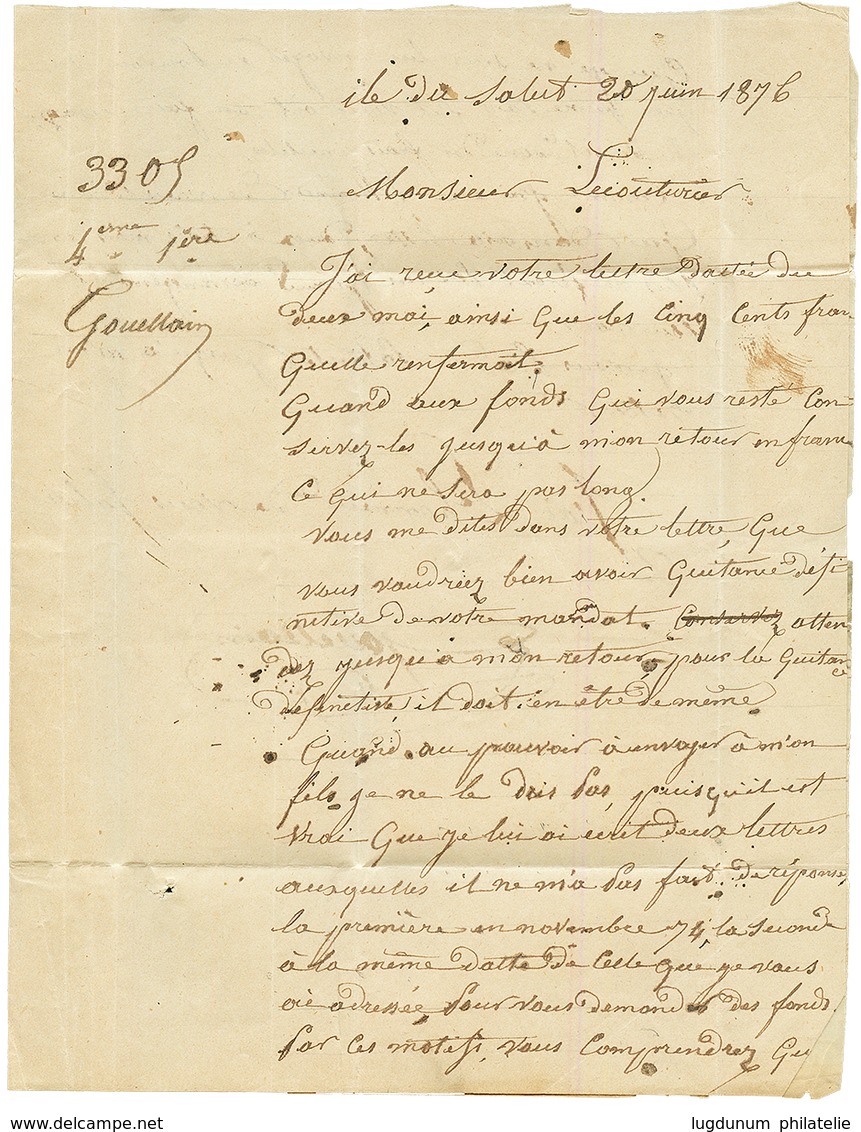 ile du Salut 20 juin 1876
3305
Monsieur Lecouturier
4eme 1ère
Gouellain
J'ai reçue votre lettre dattée du
deux mai, ainsi Que les Cinq Cents fran
Quelle renfermait.
Quand aux fonds Qui vous reste Con-
servez-les jusqu'à mon retour en fran
Ce qui ne sera pas long.
Vous me dites dans votre lettre, Que
vous voudriez bien avoir Quitance défi
netive de votre mandat. Conservez atten
dez jusqu'à mon retour, pour la Quitance
definetive, il doit en être de même
Quand au pouvoir à envoyer à mon
fils je ne le dois pas, puisqu'il est
vrai Que je lui ai ecrit deux lettres
auxquelles il ne m'a pas fait de réponse,
la première en novembre 74, la Seconde
à la même datte de Celle que je vous
ai adressée pour vous demander des fonds.
Par ces motifs, vous Comprendrez Qu
www.delcampe.net
lugdunum philatelie